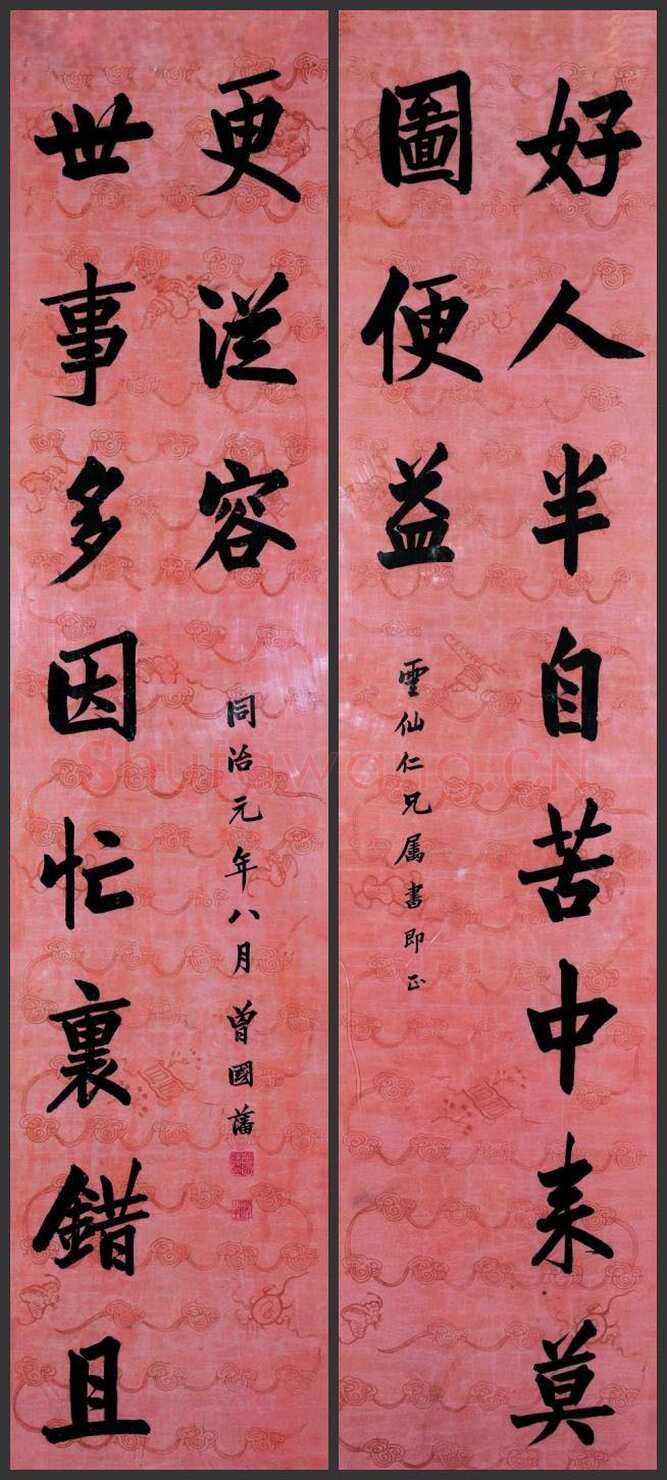 好人半自苦中来莫
圖便益
雲仙仁兄属書即正
世事多因忙裏錯且
更從容
同治元年八月曾國藩
Shufawang.CN